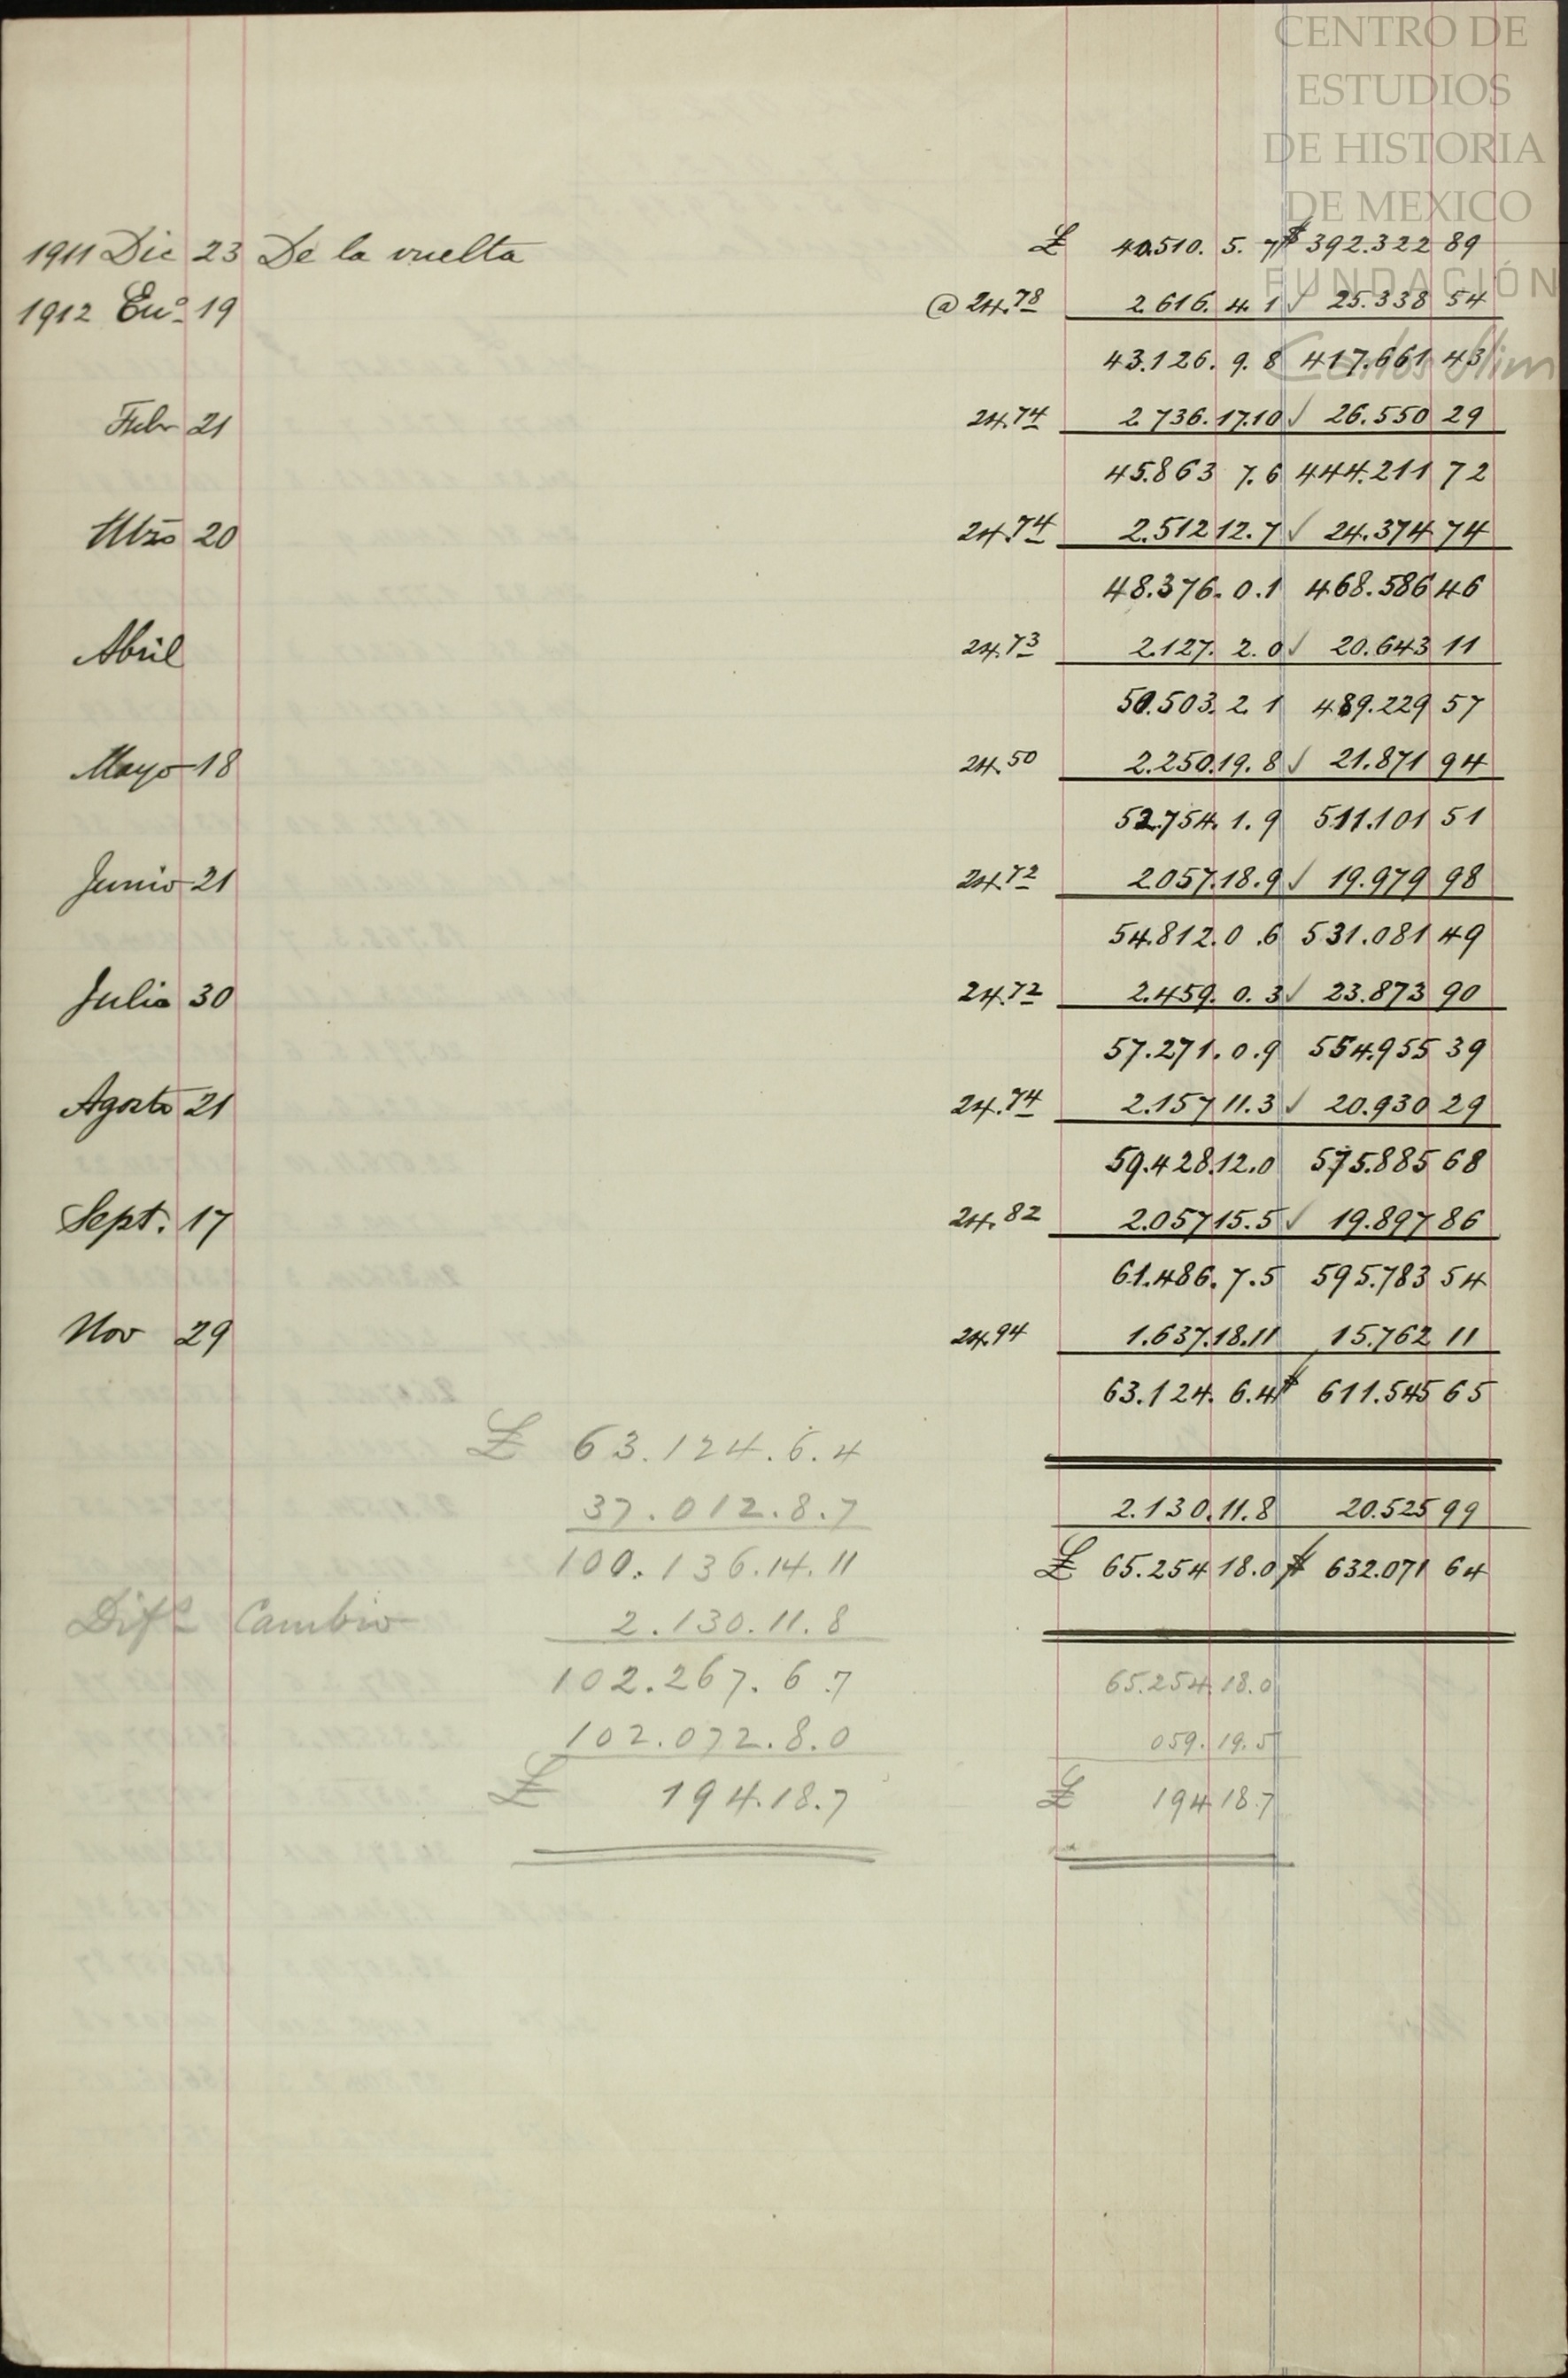 CENTRO DE
ESTUDIOS
DE HISTORIA
DE MEXICO
FUNDACIÓN
Carlos Slim
1911 Dic 23 De la vuelta £ 40.510. 5. 7 $ 392.322 89
1912 Enº 19 @ 24.78 2.616. 4. 1 ✓ 25.338 54
43.126. 9. 8 417.661 43
Febr 21 24.74 2.736.17.10 ✓ 26.550 29
45.863 7. 6 444.211 72
Mzo 20 24.74 2.512 12. 7 ✓ 24.374 74
48.376. 0. 1 468.586 46
Abril 24.73 2.127. 2. 0 ✓ 20.643 11
50.503. 2. 1 489.229 57
Mayo 18 24.50 2.250.19. 8 ✓ 21.871 94
52.754. 1. 9 511.101 51
Junio 21 24.72 2.057.18.9 ✓ 19.979 98
54.812. 0 .6 531.081 49
Julio 30 24.72 2.459. 0. 3 ✓ 23.873 90
57.271. 0. 9 554.955 39
Agosto 21 24.74 2.157 11. 3 ✓ 20.930 29
59.428.12.0 575.885 68
Sept. 17 24.82 2.057 15. 5 ✓ 19.897 86
61.486. 7. 5 595.783 54
Nov 29 24.94 1.637.18.11 15.762 11
63.124. 6. 4 $ 611.545 65
£ 63.124.6.4
37.012.8.7 2.130.11.8 20.525 99
100.136.14.11 £ 65.254 18.0 $ 632.071 64
Difª Cambio 2.130.11.8
102.267. 6.7 65.254.18.0
102.072.8.0 059.19.5
£ 194.18.7 £ 194 18.7